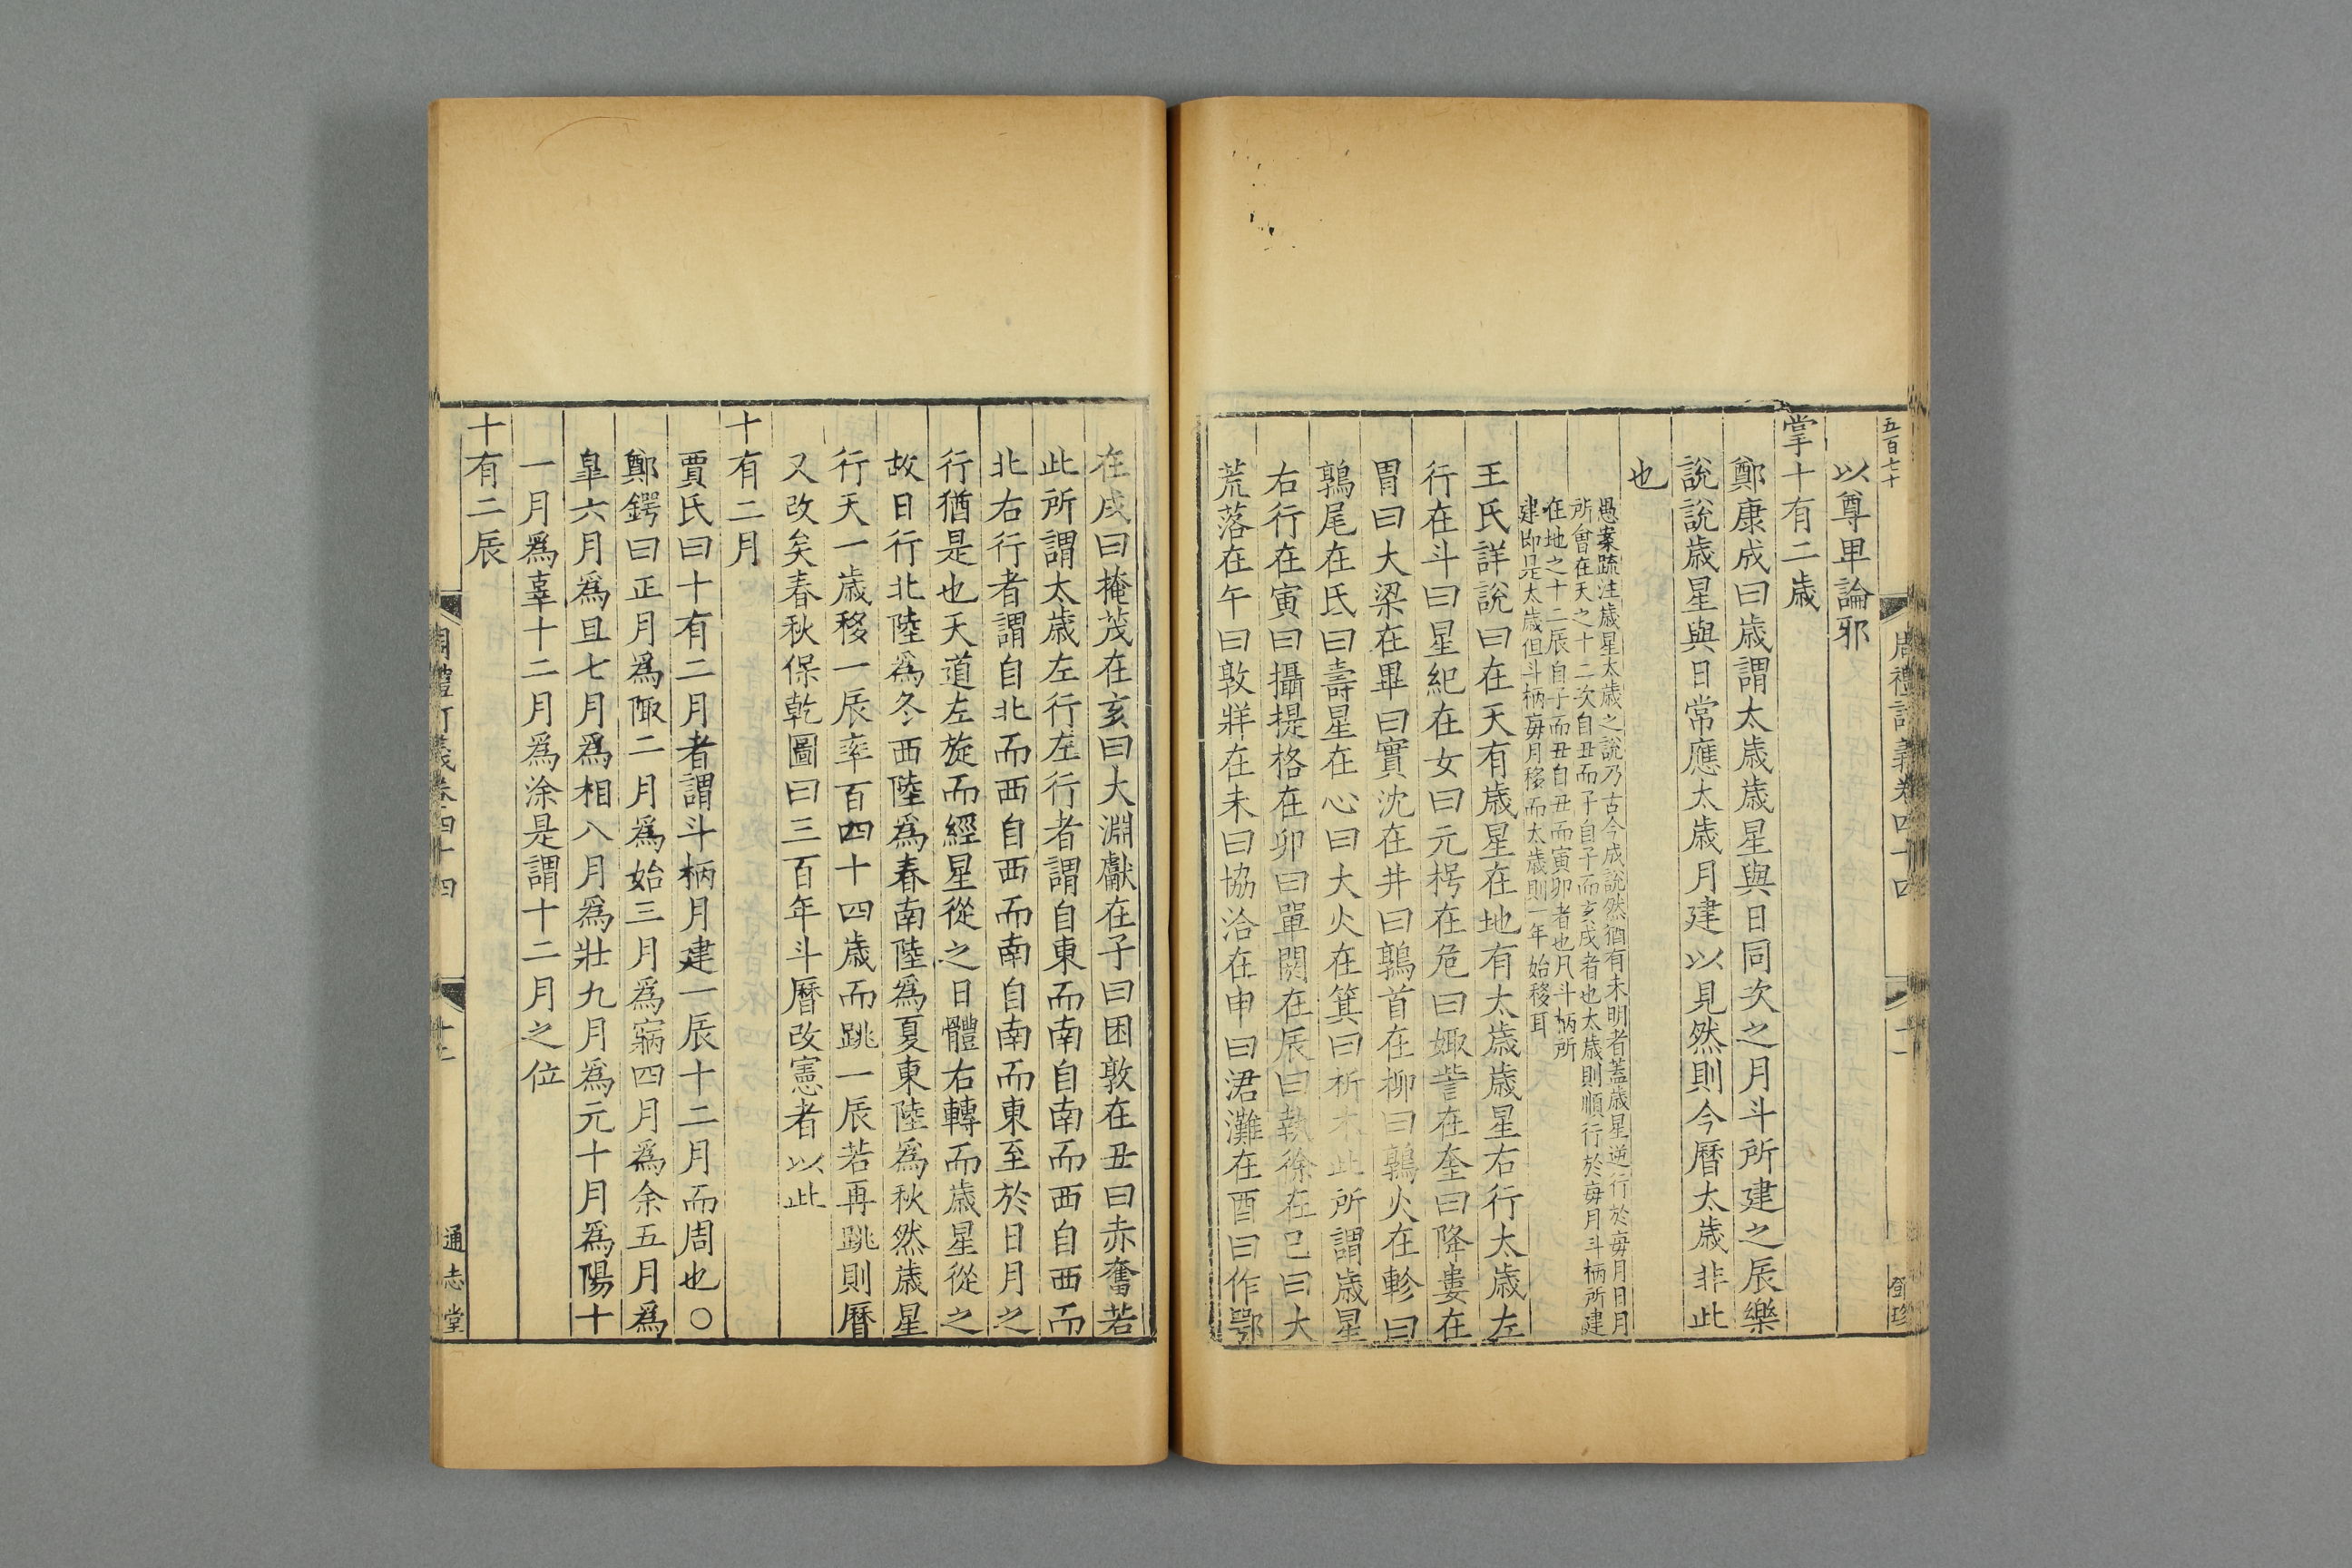 五百七十
以尊卑論邪
掌十有二歲
鄭康成曰歲謂太歲歲星與日同次之月斗所建之辰樂
說說歲星與日常應太歲月建以見然則今曆太歲非此
也
愚案疏注歲星太歲之說乃古今成說然猶有未明者蓋歲星逆行於每月日月
所會在天之十二次自丑而子自子而亥戌者也太歲則順行於每月斗柄所建
在地之十二辰自子而丑自丑而寅卯者也凡斗柄所
建即是太歲但斗柄每月移而太歲則一年始移耳
王氏詳說曰在天有歲星在地有太歲歲星右行太歲左
行在斗曰星紀在女曰元枵在危曰娵訾在奎曰降婁在
胃曰大梁在畢曰實沈在井曰鶉首在柳曰鶉火在軫曰
鶉尾在氐曰壽星在心曰大火在箕曰析木此所謂歲星
右行在寅曰攝提格在卯曰單閼在辰曰執徐在巳曰大
荒落在午曰敦牂在未曰協洽在申曰涒灘在酉曰作鄂
周禮訂義卷四十四
十一
鄧珍
在戌曰掩茂在亥曰大淵獻在子曰困敦在丑曰赤奮若
此所謂太歲左行左行者謂自東而南自南而西自西而
北右行者謂自北而西自西而南自南而東至於日月之
行猶是也天道左旋而經星從之日體右轉而歲星從之
故日行北陸爲冬西陸爲春南陸爲夏東陸爲秋然歲星
行天一歲移一辰率百四十四歲而跳一辰若再跳則曆
又改矣春秋保乾圖曰三百年斗曆改憲者以此
十有二月
賈氏曰十有二月者謂斗柄月建一辰十二月而周也〇
鄭鍔曰正月爲陬二月爲始三月爲寎四月爲余五月爲
皐六月爲且七月爲相八月爲壯九月爲元十月爲陽十
一月爲辜十二月爲涂是謂十二月之位
十有二辰
周禮訂義卷四十四
通志堂